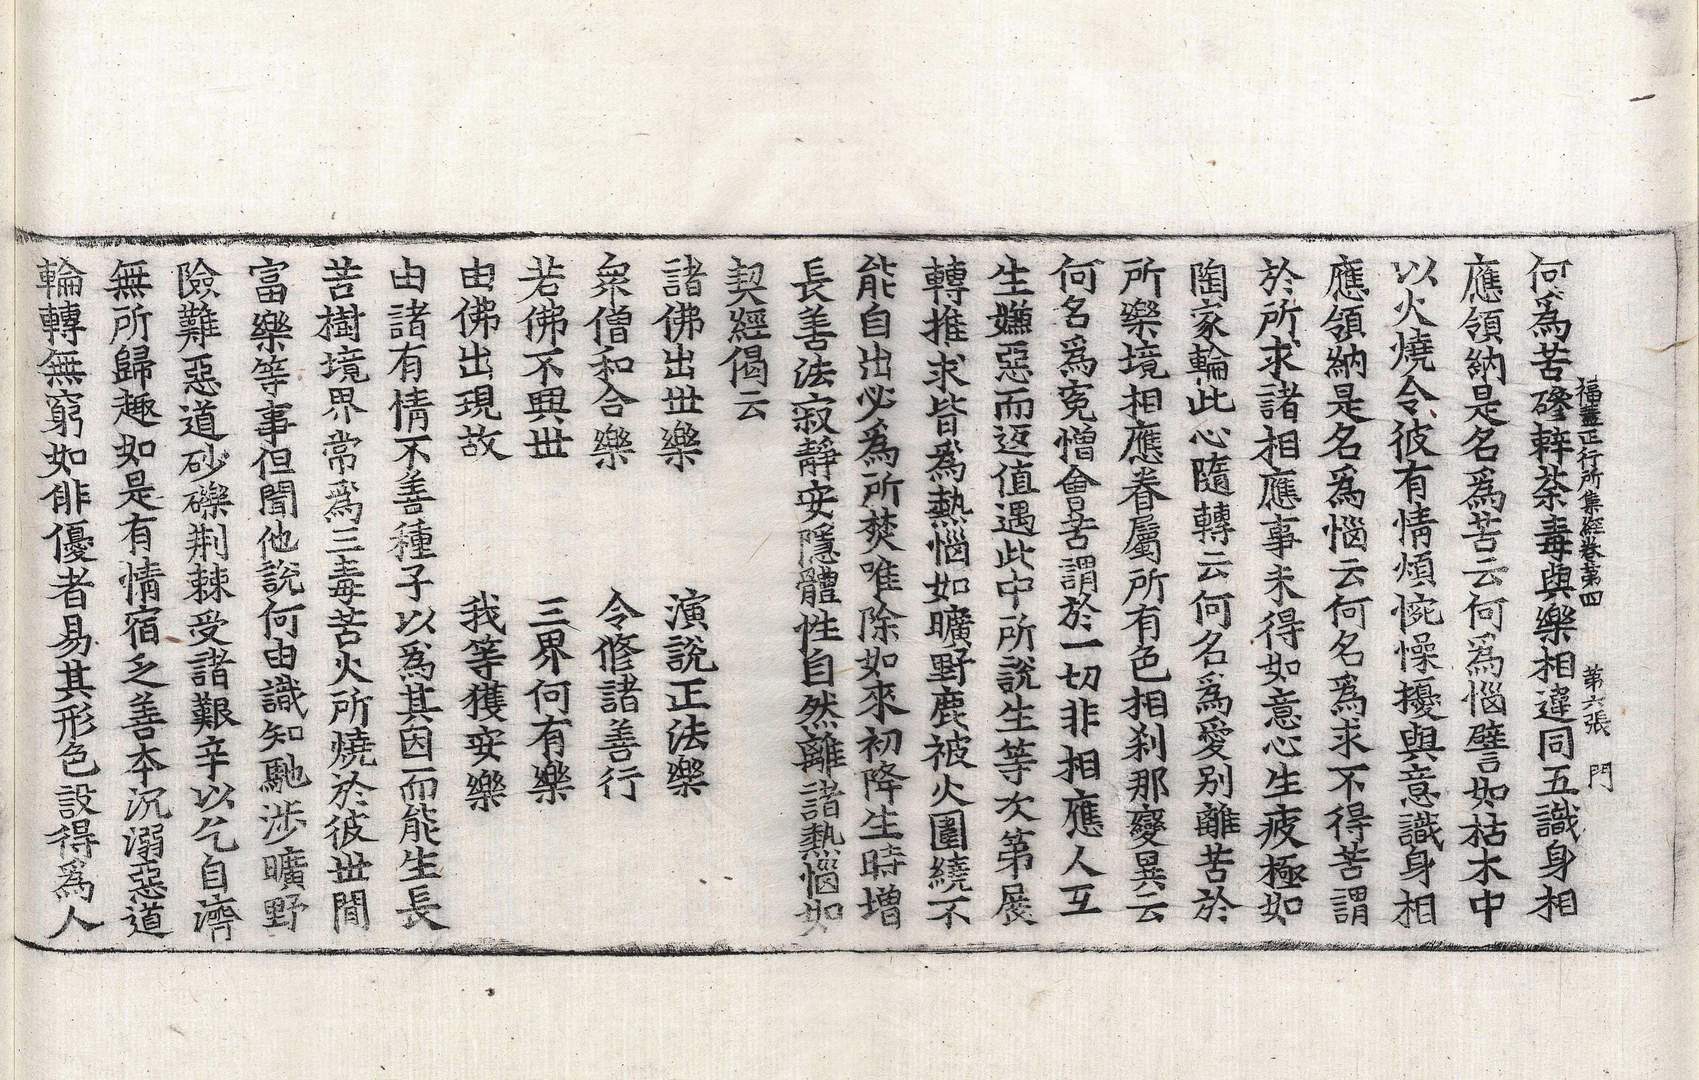 福蓋正行所集經卷第四　第六張　門
何爲苦磣辢荼毒與樂相違同五識身相
應領納是名爲苦云何爲惱譬如枯木中
以火燒令彼有情煩惋懆擾與意識身相
應領納是名爲惱云何名爲求不得苦謂
於所求諸相應事未得如意心生疲極如
陶家輪此心隨轉云何名爲愛别離苦於
所樂境相應眷屬所有色相刹那變異云
何名爲寃憎會苦謂於一切非相應人互
生嫌惡而返值遇此中所說生等次第展
轉推求皆爲熱惱如曠野鹿被火圍繞不
能自出必爲所焚唯除如來初降生時增
長善法寂靜安隱體性自然離諸熱惱如
契經偈云
諸佛出丗樂　演說正法樂
衆僧和合樂　令修諸善行
若佛不興丗　三界何有樂
由佛出現故　我等獲安樂
由諸有情不善種子以爲其因而能生長
苦樹境界常爲三毒苦火所燒於彼丗間
富樂等事但聞他說何由識知馳涉曠野
險難惡道砂礫荆棘受諸艱辛以乞自濟
無所歸趣如是有情宿乏善本沉溺惡道
輪轉無窮如俳優者易其形色設得爲人